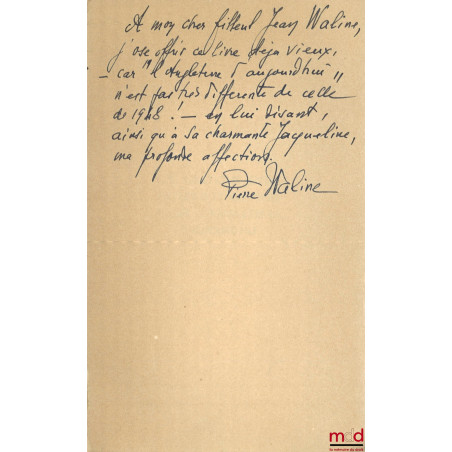 A mon cher filleul Jean Waline,
j'ose offrir ce livre déjà vieux,
– car "l'Angleterre d'aujourd'hui"
n'est pas très différente de celle
de 1948 ! – en lui disant,
ainsi qu'à sa charmante Jacqueline,
ma profonde affection.
Pierre Waline
mdd
la mémoire du droit